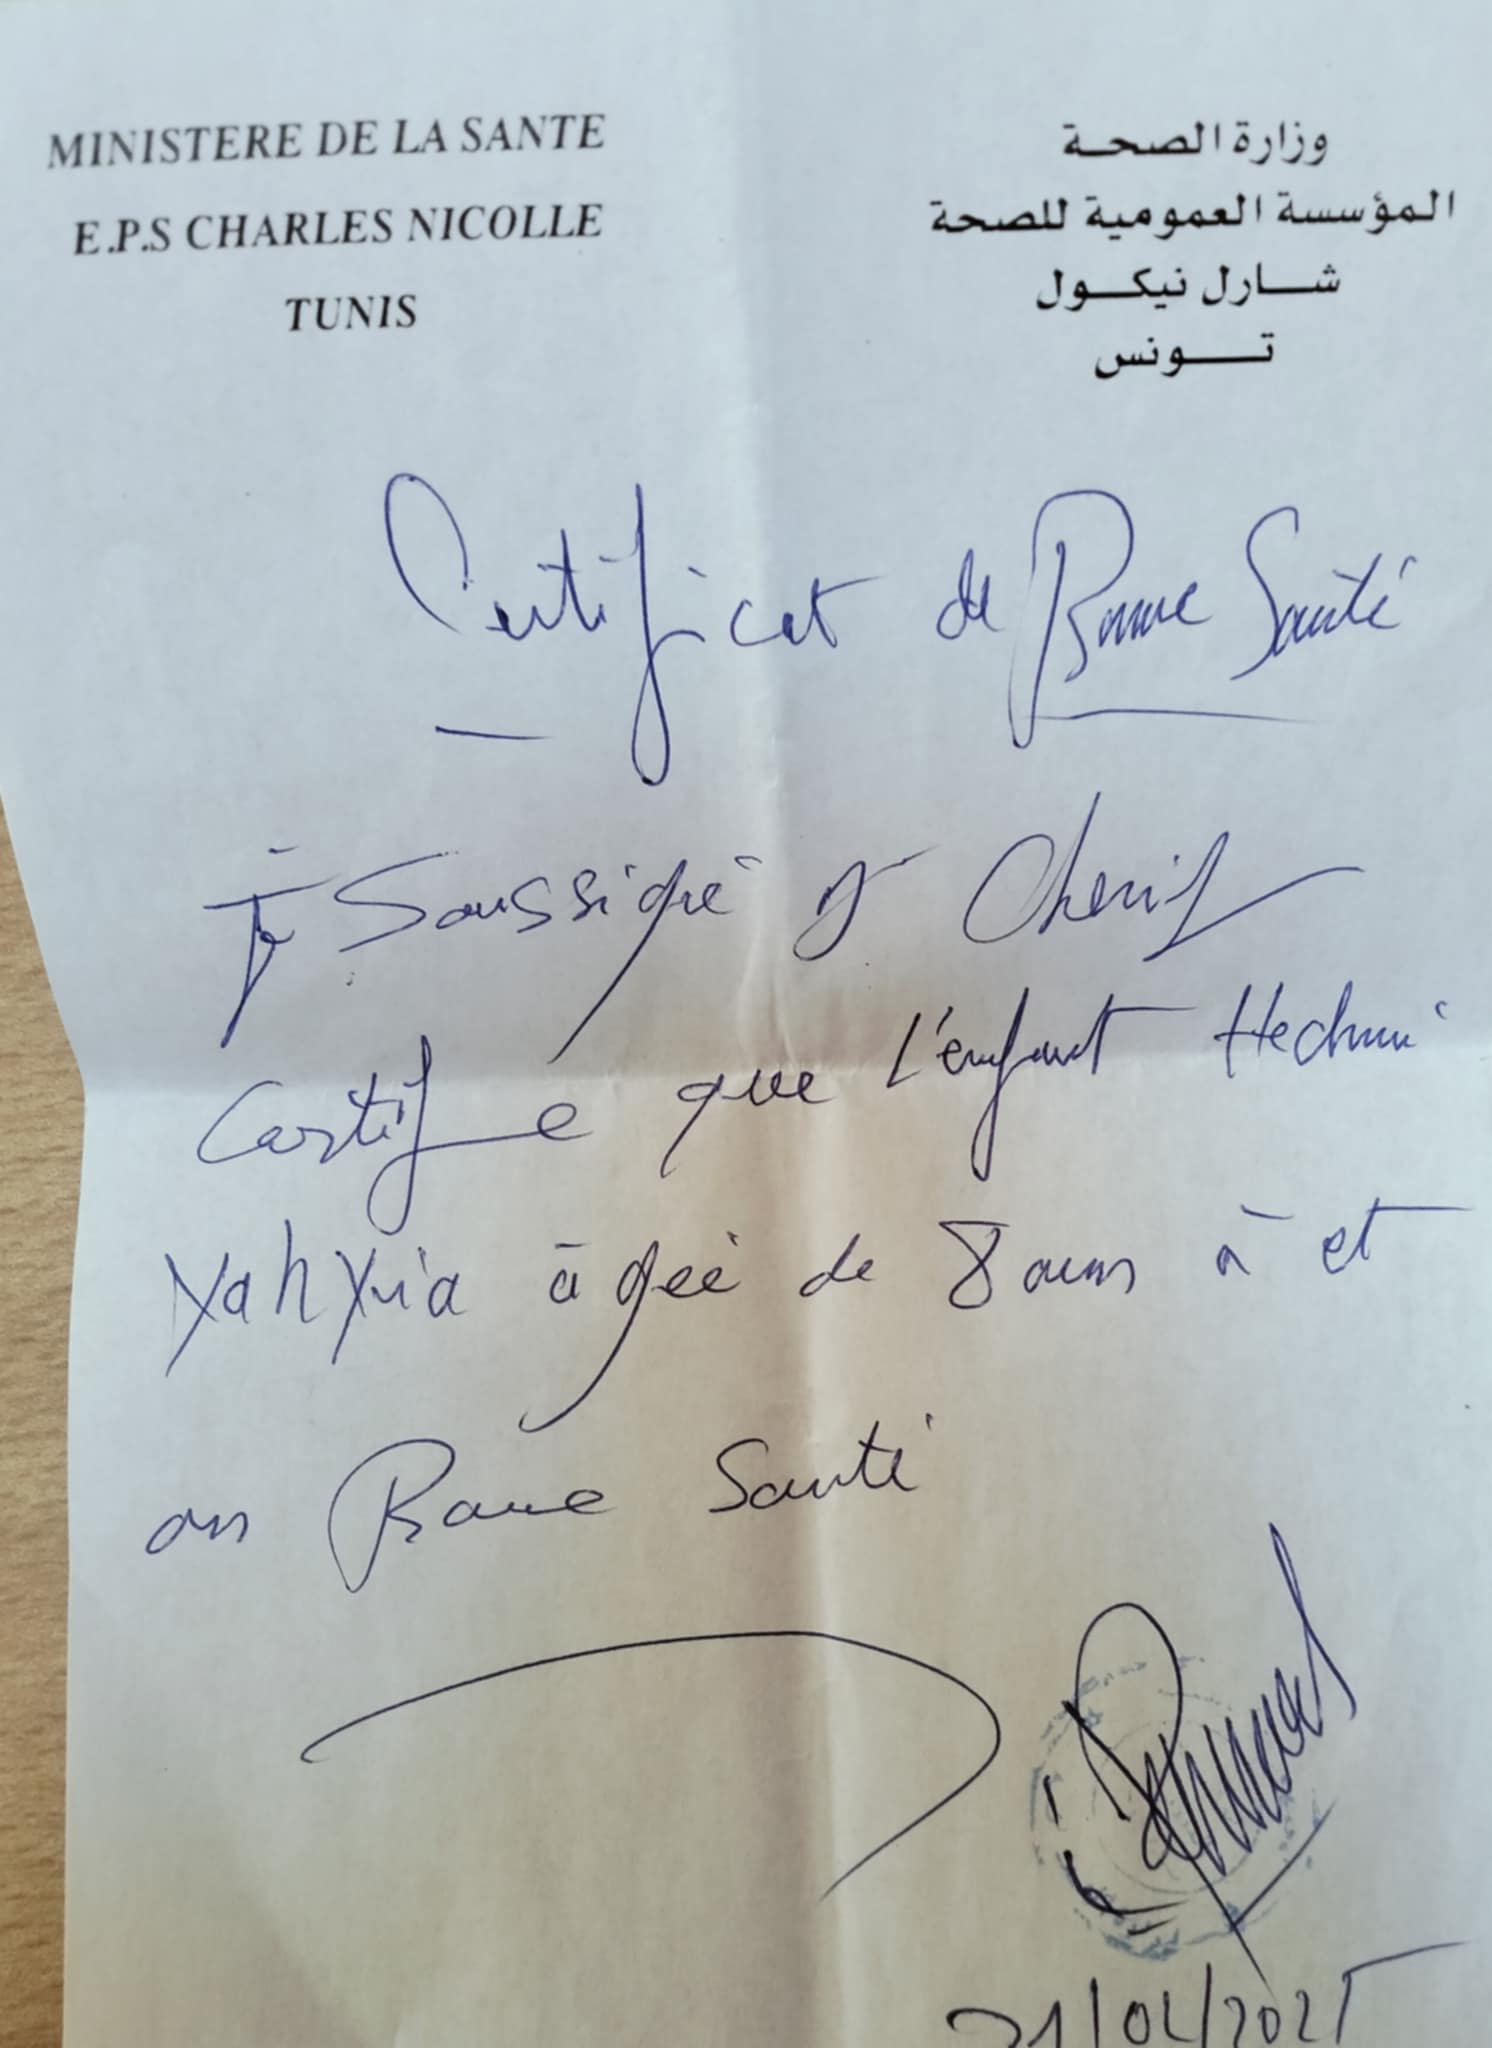 MINISTERE DE LA SANTE
E.P.S CHARLES NICOLLE
TUNIS
وزارة الصحة
المؤسسة العمومية للصحة
شارل نيكول
تونس
Certificat de Bonne Santé
Je Soussigné Dr Cherif
Certifie que l'enfant Hechmi
Yahyia âgée de 8 ans à et
en Bonne Santé